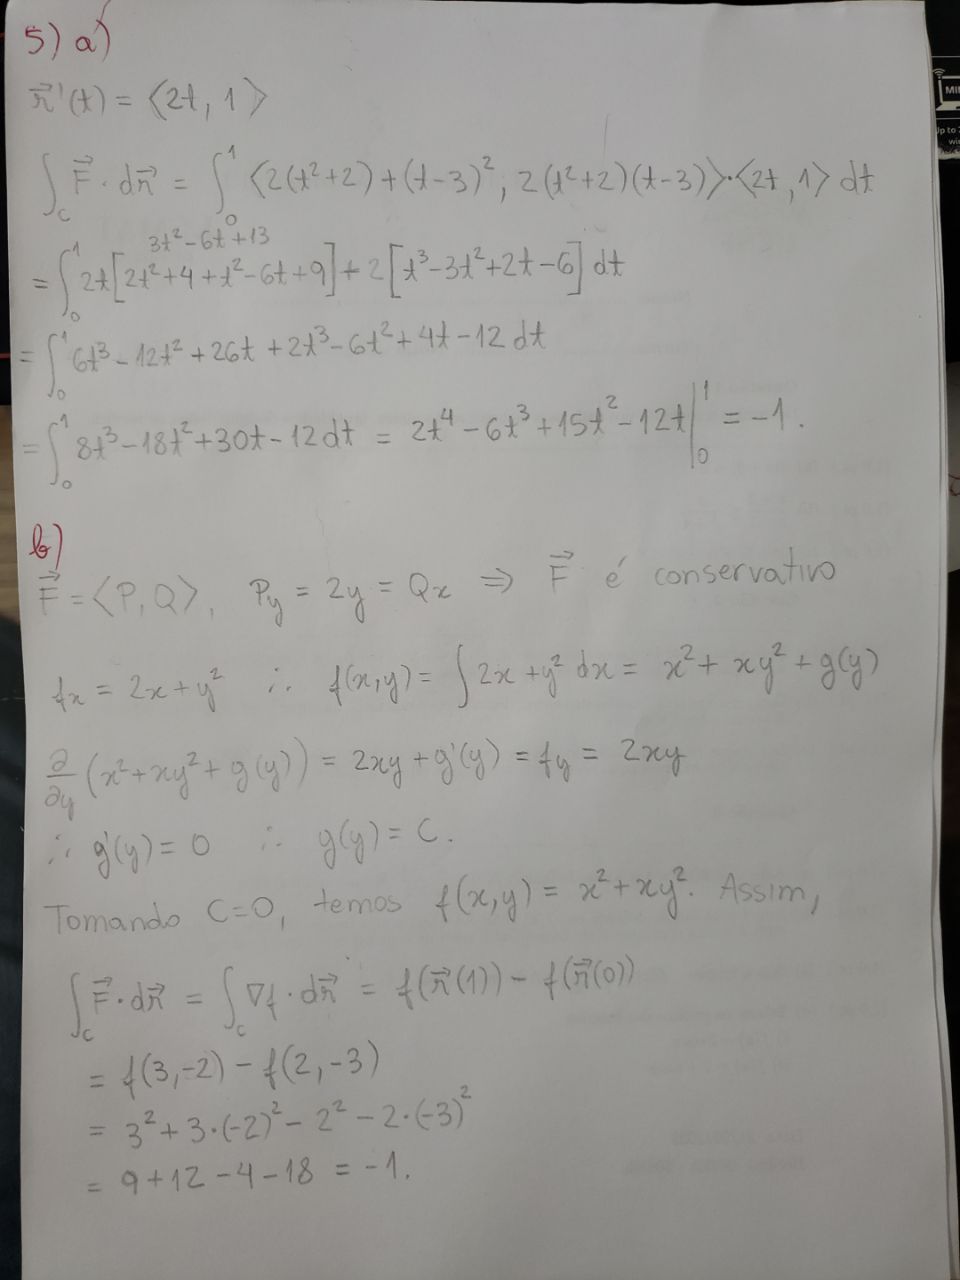 5) a)
r⃗'(t) = ⟨2t, 1⟩
∫_C F⃗ · dr⃗ = ∫_0^1 ⟨2(t²+2) + (t-3)², 2(t²+2)(t-3)⟩·⟨2t, 1⟩ dt
3t²-6t+13
= ∫_0^1 2t[2t²+4+t²-6t+9] + 2[t³-3t²+2t-6] dt
= ∫_0^1 6t³ - 12t² + 26t + 2t³ - 6t² + 4t - 12 dt
= ∫_0^1 8t³ - 18t² + 30t - 12 dt = 2t⁴ - 6t³ + 15t² - 12t |_0^1 = -1.
b)
F⃗ = ⟨P, Q⟩, Py = 2y = Qx ⇒ F⃗ é conservativo
fx = 2x + y² ∴ f(x,y) = ∫ 2x + y² dx = x² + xy² + g(y)
∂/∂y (x² + xy² + g(y)) = 2xy + g'(y) = fy = 2xy
∴ g'(y) = 0 ∴ g(y) = C.
Tomando C=0, temos f(x,y) = x² + xy². Assim,
∫_C F⃗ · dr⃗ = ∫_C ∇f · dr⃗ = f(r⃗(1)) - f(r⃗(0))
= f(3,-2) - f(2,-3)
= 3² + 3·(-2)² - 2² - 2·(-3)²
= 9 + 12 - 4 - 18 = -1.